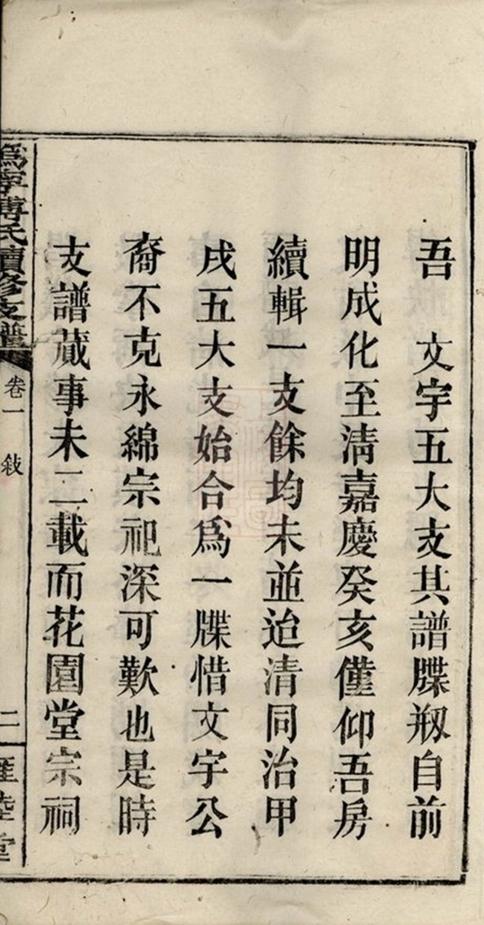 吾 文宇五大支其譜牒剏自前
明成化至清嘉慶癸亥僅仰吾房
續輯一支餘均未並迨清同治甲
戌五大支始合爲一牒惜文宇公
裔不克永綿宗祀深可歎也是時
支譜蕆事未二載而花園堂宗祠
爲寧傅氏續修支譜
卷一 敍
二
堂